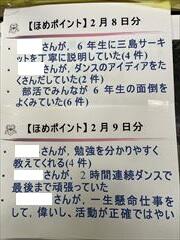 【ほめポイント】２月８日分
さんが、６年生に三島サーキ
ットを丁寧に説明していた(４件)
さんが、ダンスのアイディアをた
くさんだしていた(２件)
・部活でみんなが６年生の面倒を
よくみていた(６件)
【ほめポイント】２月９日分
さんが、勉強を分かりやすく
教えてくれる(４件)
さんが、２時間連続ダンスで
最後まで頑張っていた
さんが、一生懸命仕事を
して、偉いし、活動が正確ではやい